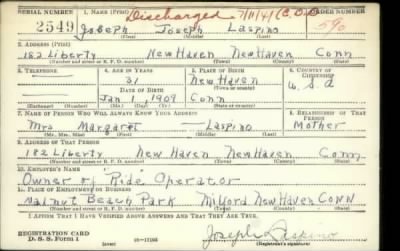 SERIAL NUMBER 1. NAME (Print) Discharged 7/11/41 (C.O.D) ORDER NUMBER
2549 Joseph Joseph Laspino 590
(First) (Middle) (Last)
2. ADDRESS (Print)
182 Liberty New Haven New Haven Conn
(Number and street or R. F. D. number) (Town) (County) (State)
3. TELEPHONE 4. AGE IN YEARS 5. PLACE OF BIRTH 6. COUNTRY OF CITIZENSHIP
31 New Haven
DATE OF BIRTH (Town or county)
Jan 1 1909 Conn U.S.A
(Exchange) (Number) (Mo.) (Day) (Yr.) (State or country)
7. NAME OF PERSON WHO WILL ALWAYS KNOW YOUR ADDRESS 8. RELATIONSHIP OF THAT PERSON
Mrs Margaret Laspino Mother
(Mr., Mrs., Miss) (First) (Middle) (Last)
9. ADDRESS OF THAT PERSON
182 Liberty New Haven New Haven Conn
(Number and street or R. F. D. number) (Town) (County) (State)
10. EMPLOYER'S NAME
Owner of "Ride" Operator
11. PLACE OF EMPLOYMENT OR BUSINESS
Walnut Beach Park Milford New Haven CONN
(Number and street or R. F. D. number) (Town) (County) (State)
I AFFIRM THAT I HAVE VERIFIED ABOVE ANSWERS AND THAT THEY ARE TRUE.
REGISTRATION CARD
D. S. S. Form 1 Joseph Laspino
(Registrant's signature)